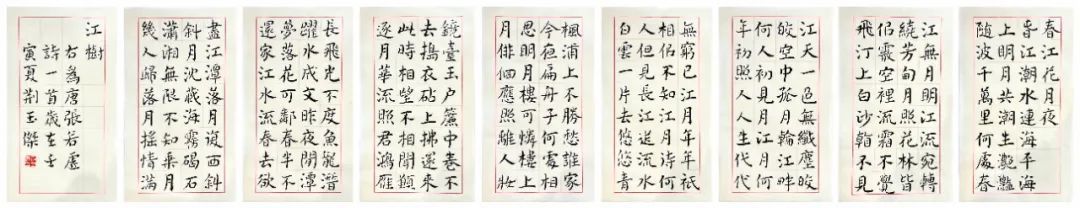 春江花月夜
春江潮水連海平海
上明月共潮生灩灩
隨波千萬里何處春
江無月明江流宛轉
繞芳甸月照花林皆
似霰空裡流霜不覺
飛汀上白沙看不見
江天一色無纖塵皎
皎空中孤月輪江畔
何人初見月江月何
年初照人人生代代
無窮已江月年年祇
相似不知江月待何
人但見長江送流水
白雲一片去悠悠青
楓浦上不勝愁誰家
今夜扁舟子何處相
思明月樓可憐樓上
月徘徊應照離人妝
鏡臺玉户簾中卷不
去搗衣砧上拂還來
此時相望不相聞願
逐月華流照君鴻雁
長飛光不度魚龍潛
躍水成文昨夜閒潭
夢落花可憐春半不
還家江水流春去欲
盡江潭落月復西斜
斜月沈沈藏海霧碣石
瀟湘無限不知乘月
幾人歸落月搖情滿
江樹
右為唐張若虛
詩一首歲在壬
寅夏荊玉傑